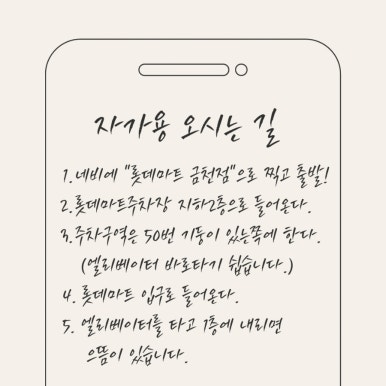 자가용 오시는 길
1. 네비에 "롯데마트 금천점"으로 찍고 출발!
2. 롯데마트주차장 지하2층으로 들어온다.
3. 주차구역은 50번 기둥이 있는쪽에 한다.
(엘리베이터 바로타기 쉽습니다.)
4. 롯데마트 입구로 들어온다.
5. 엘리베이터를 타고 1층에 내리면
으뜸이 있습니다.